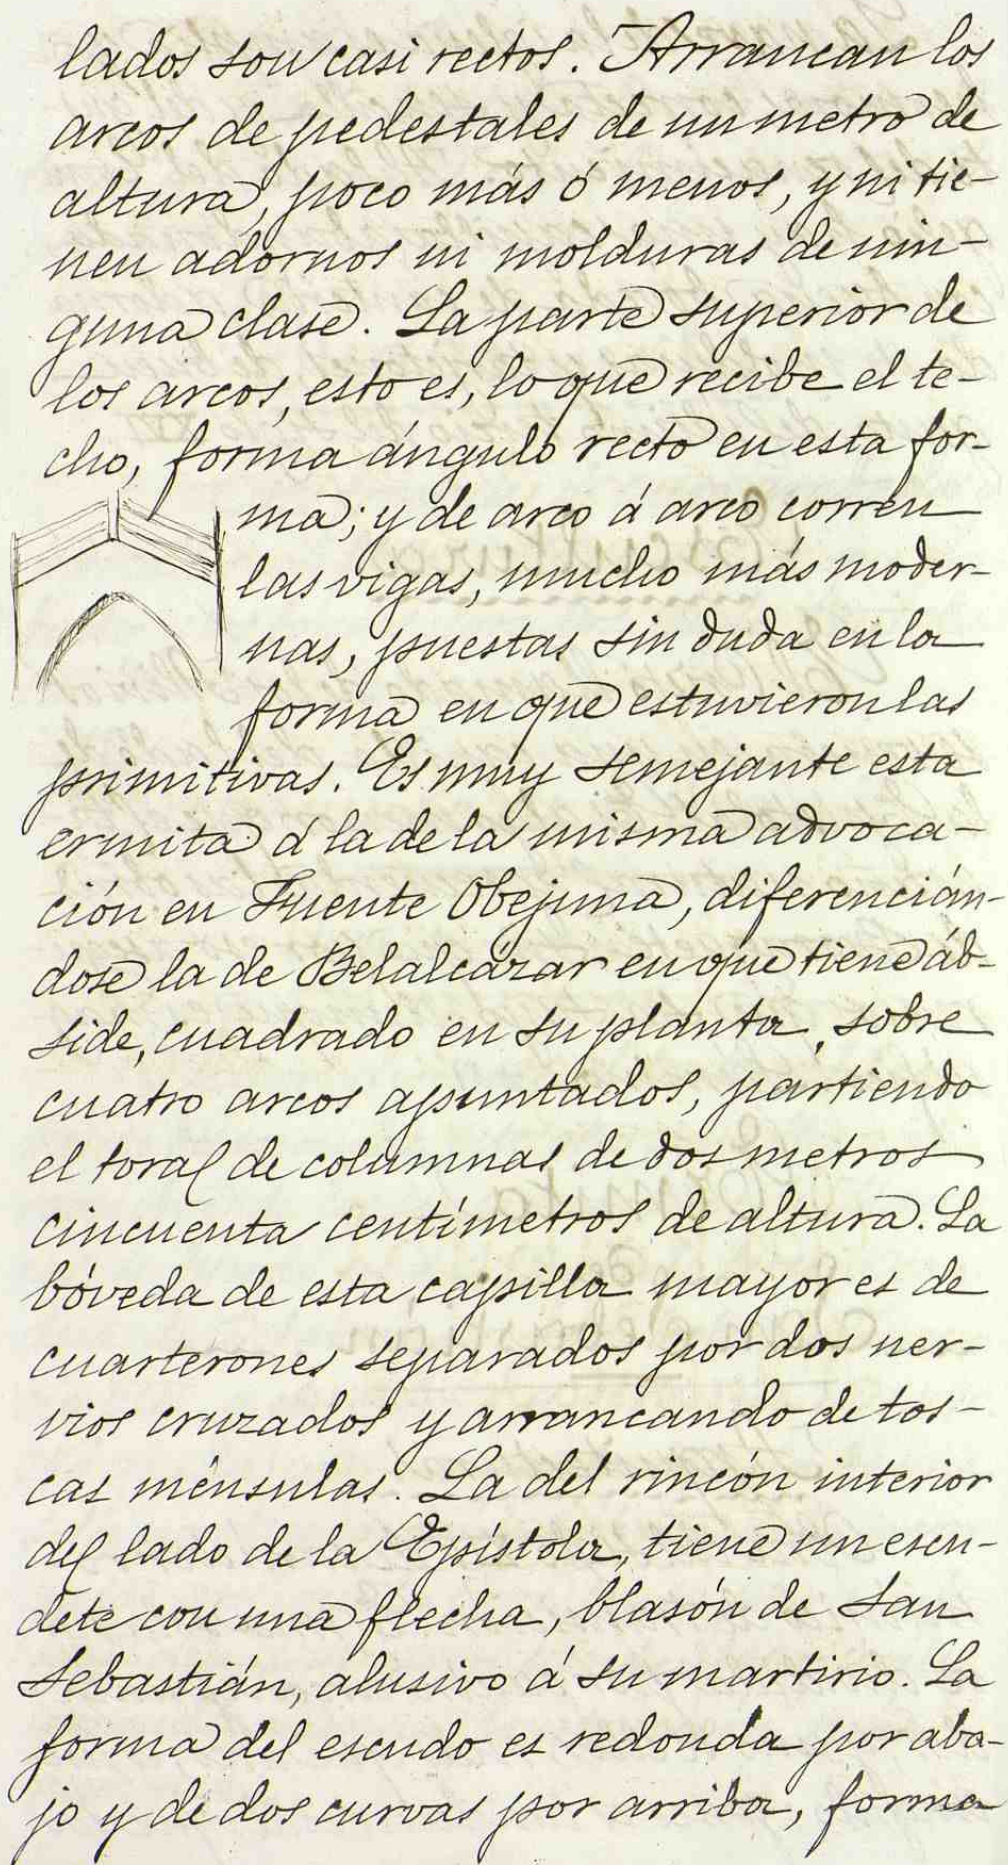 lados son casi rectos. Arrancan los
arcos de pedestales de un metro de
altura, poco más ó menos, y ni tie-
nen adornos ni molduras de nin-
guna clase. La parte superior de
los arcos, esto es, lo que recibe el te-
cho, forma ángulo recto en esta for-
ma; y de arco á arco corren
las vigas, mucho más moder-
nas, puestas sin duda en la
forma en que estuvieron las
primitivas. Es muy semejante esta
ermita á la de la misma advoca-
ción en Fuente Obejuna, diferencián-
dose la de Belalcázar en que tiene áb-
side, cuadrado en su planta, sobre
cuatro arcos apuntados, partiendo
el toral de columnas de dos metros
cincuenta centímetros de altura. La
bóveda de esta capilla mayor es de
cuarterones separados por dos ner-
vios cruzados y arrancando de tos-
cas ménsulas. La del rincón interior
del lado de la Epístola, tiene un escu-
dete con una flecha, blasón de San
Sebastián, alusivo á su martirio. La
forma del escudo es redonda por aba-
jo y de dos curvas por arriba, forma